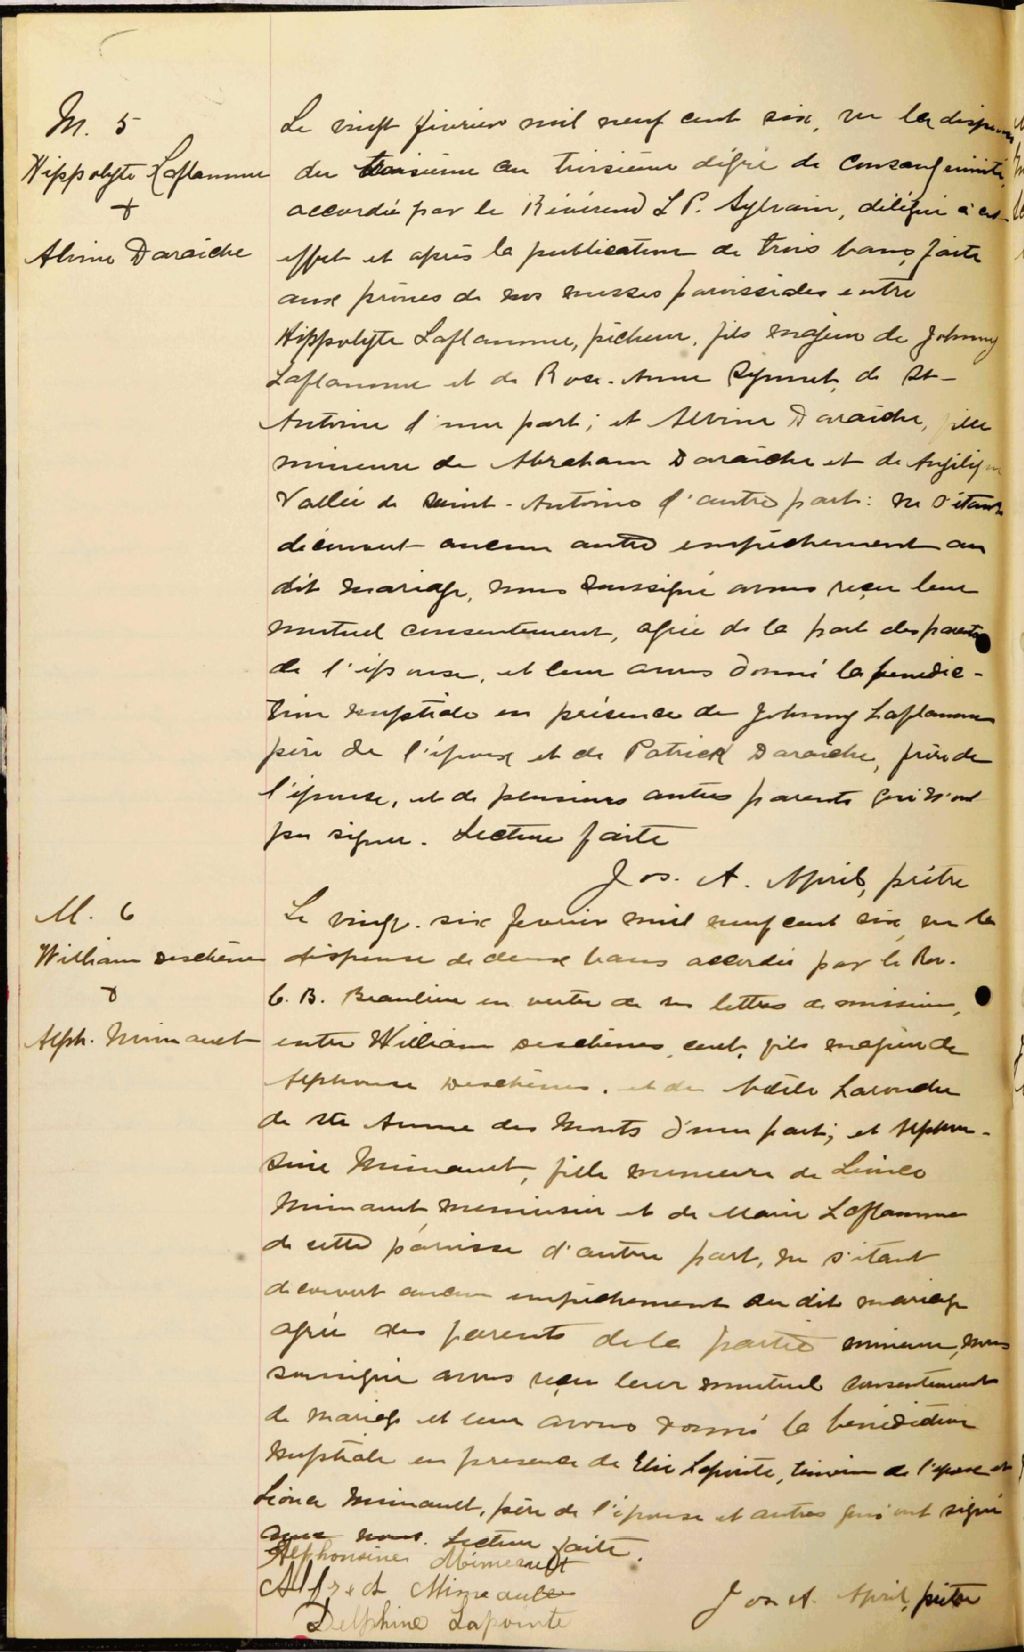 M. 5
Hippolyte Laflamme
+
Alvine Daraiche
Le vingt février mil neuf cent six, vu la dispense
du troisième au troisième degré de consanguinité,
accordée par le Révérend L P. Sylvain, délégué à cet
effet et après la publication de trois bans, faite
aux prônes de nos messes paroissiales entre
Hippolyte Laflamme, pêcheur, fils majeur de Johnny
Laflamme et de Rose-Anne Synnet, de St-
Antoine d'une part; et Alvine Daraiche, fille
mineure de Abraham Daraiche et de Angélique
Vallée de saint-Antoine d'autre part: ne s'étant
découvert aucun autre empêchement au
dit mariage, nous soussigné avons reçu leur
mutuel consentement, agréé de la part des parents
de l'épouse, et leur avons donné la bénédic-
tion nuptiale en présence de Johnny Laflamme
père de l'époux et de Patrick Daraiche, frère de
l'épouse, et de plusieurs autres parents qui n'ont
pu signer. Lecture faite
Jos. A. April, prêtre
M. 6
William Deschênes
&
Alph. Mimeault
Le vingt-six février mil neuf cent six, vu la
dispense de deux bans accordée par le Rév.
C. B. Beaulieu en vertu de ses lettres de mission,
entre William Deschênes, cult, fils majeur de
Alphonse Deschênes, et de Adèle Lavoie
de Ste Anne des Monts d'une part; et Alphon-
sine Mimeault, fille mineure de
Mimeault menuisier et de Marie Laflamme
de cette paroisse d'autre part, ne s'étant
découvert aucun empêchement au dit mariage
agréé des parents de la partie mineure, nous
soussigné avons reçu leur mutuel consentement
de mariage et leur avons donné la bénédiction
nuptiale en présence de Elie Lapointe, témoin de l'époux et
Mimeault, père de l'épouse et autres qui ont signé
avec nous. Lecture faite.
Alphonsine Mimeault
Alfred Mimeault
Delphine Lapointe
Jos A. April, prêtre